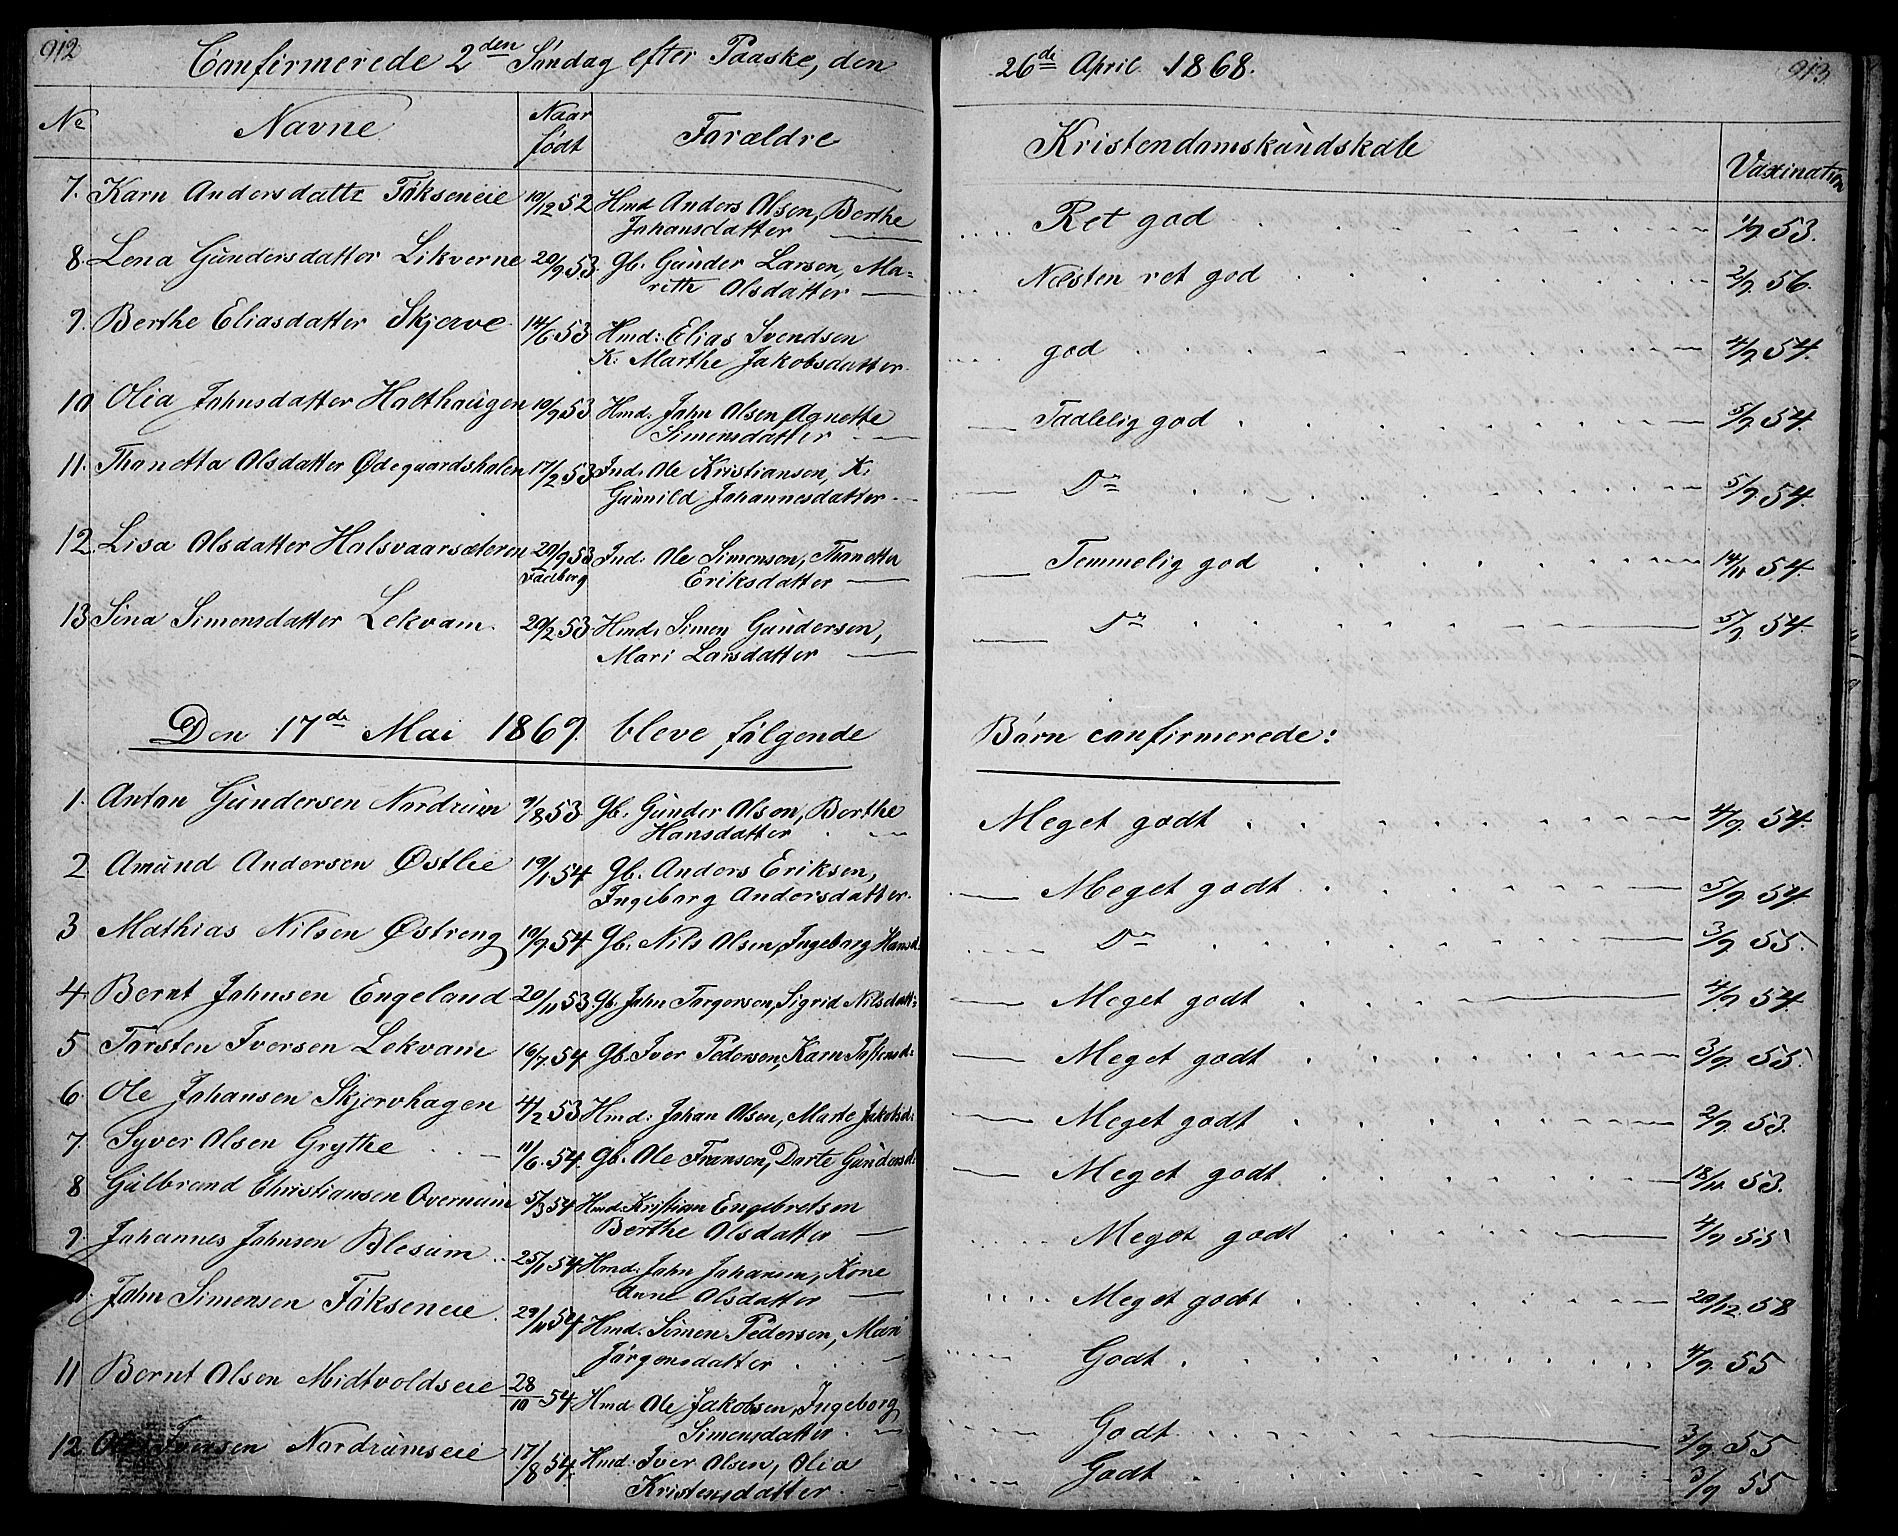 912
Confirmerede 2den Söndag efter Paaske, den 26de April 1868.
913
No Navne Naar födt Forældre Kristendomskundskab Vaxination
7. Karn Andersdatter Fökseneie 10/12 52 Hmd Anders Olsen, Berthe
Johansdatter Ret god 1/9 53.
8. Lena Gundersdatter Likverne 20/9 53. Gb. Gunder Larsen, Ma=
rith Olsdatter Næsten ret god 2/9 56.
9. Berthe Eliasdatter Skjerve 14/6 53 Hmd: Elias Svendsen
K. Marthe Jakobsdatter god 4/9 54.
10 Olia Johnsdatter Holthaugen 10/9 53 Hmd. John Olsen, Agnethe
Simensdatter Taalelig god 5/9 54.
11. Thonetta Olsdatter Ødegaardsholen 17/2 53 Ind. Ole Kristiansen, K.
Gunnild Johannesdatter Do 5/9 54.
12. Lisa Olsdatter Halsvaarsæteren 20/9 53 Ind. Ole Simensen, Thonetta
Faaberg
Eriksdatter Temmelig god 14/11 54.
13 Sina Simensdatter Lekvam 20/2 53 Hmd. Simen Gundersen,
Mari Larsdatter Do 5/9 54.
Den 17de Mai 1869. bleve følgende Börn confirmerede:
1. Anton Gundersen Nordrum 9/8 53 Gb. Gunder Olsen, Berthe
Hansdatter Meget godt 4/9. 54.
2 Amund Andersen Østlie 19/1 54 Gb. Anders Eriksen,
Ingeborg Andersdatter. Meget godt 5/9 54
3 Mathias Nilsen Østreng 10/9 54 Gb. Nils Olsen, Ingeborg Hansd. Do 3/9 55.
4 Bernt Johnsen Engeland 20/11 53 Gb. John Torgersen, Sigrid Nilsdatt: Meget godt 4/9 54.
5 Torsten Iversen Lekvam 16/7. 54 Gb. Iver Pedersen, Karn Tostensd: Meget godt 3/9. 55.
6. Ole Johansen Skjervhagen 4/2 53 Hmd: Johan Olsen, Marte Jakobsd: Meget godt 2/9. 53.
7. Syver Olsen Grythe 11/6. 54. Gb. Ole Fransen, Dorte Gundersd: Meget godt 18/11 53.
8 Gulbrand Christiansen Overnum 5/3 54 Hmd: Kristian Engebretsen
Berthe Olsdatter Meget godt 4/9 55
9. Johannes Johnsen Blesum 25/1 54 Hmd: John Johansen, Kone
Anne Olsdatter Meget godt 20/12. 58
John Simensen Fökseneie. 29/11 54 Hmd. Simen Pedersen, Mari
Jörgensdatter Godt 4/9. 55
11 Bernt Olsen Midtvoldseie 28/10 54 Hmd Ole Jakobsen, Ingeborg
Simensdatter Godt 3/9 55
12. Ole Iversen Nordrumseie 17/8 54. Hmd: Iver Olsen, Olia
Kristensdatter Godt 3/9 55